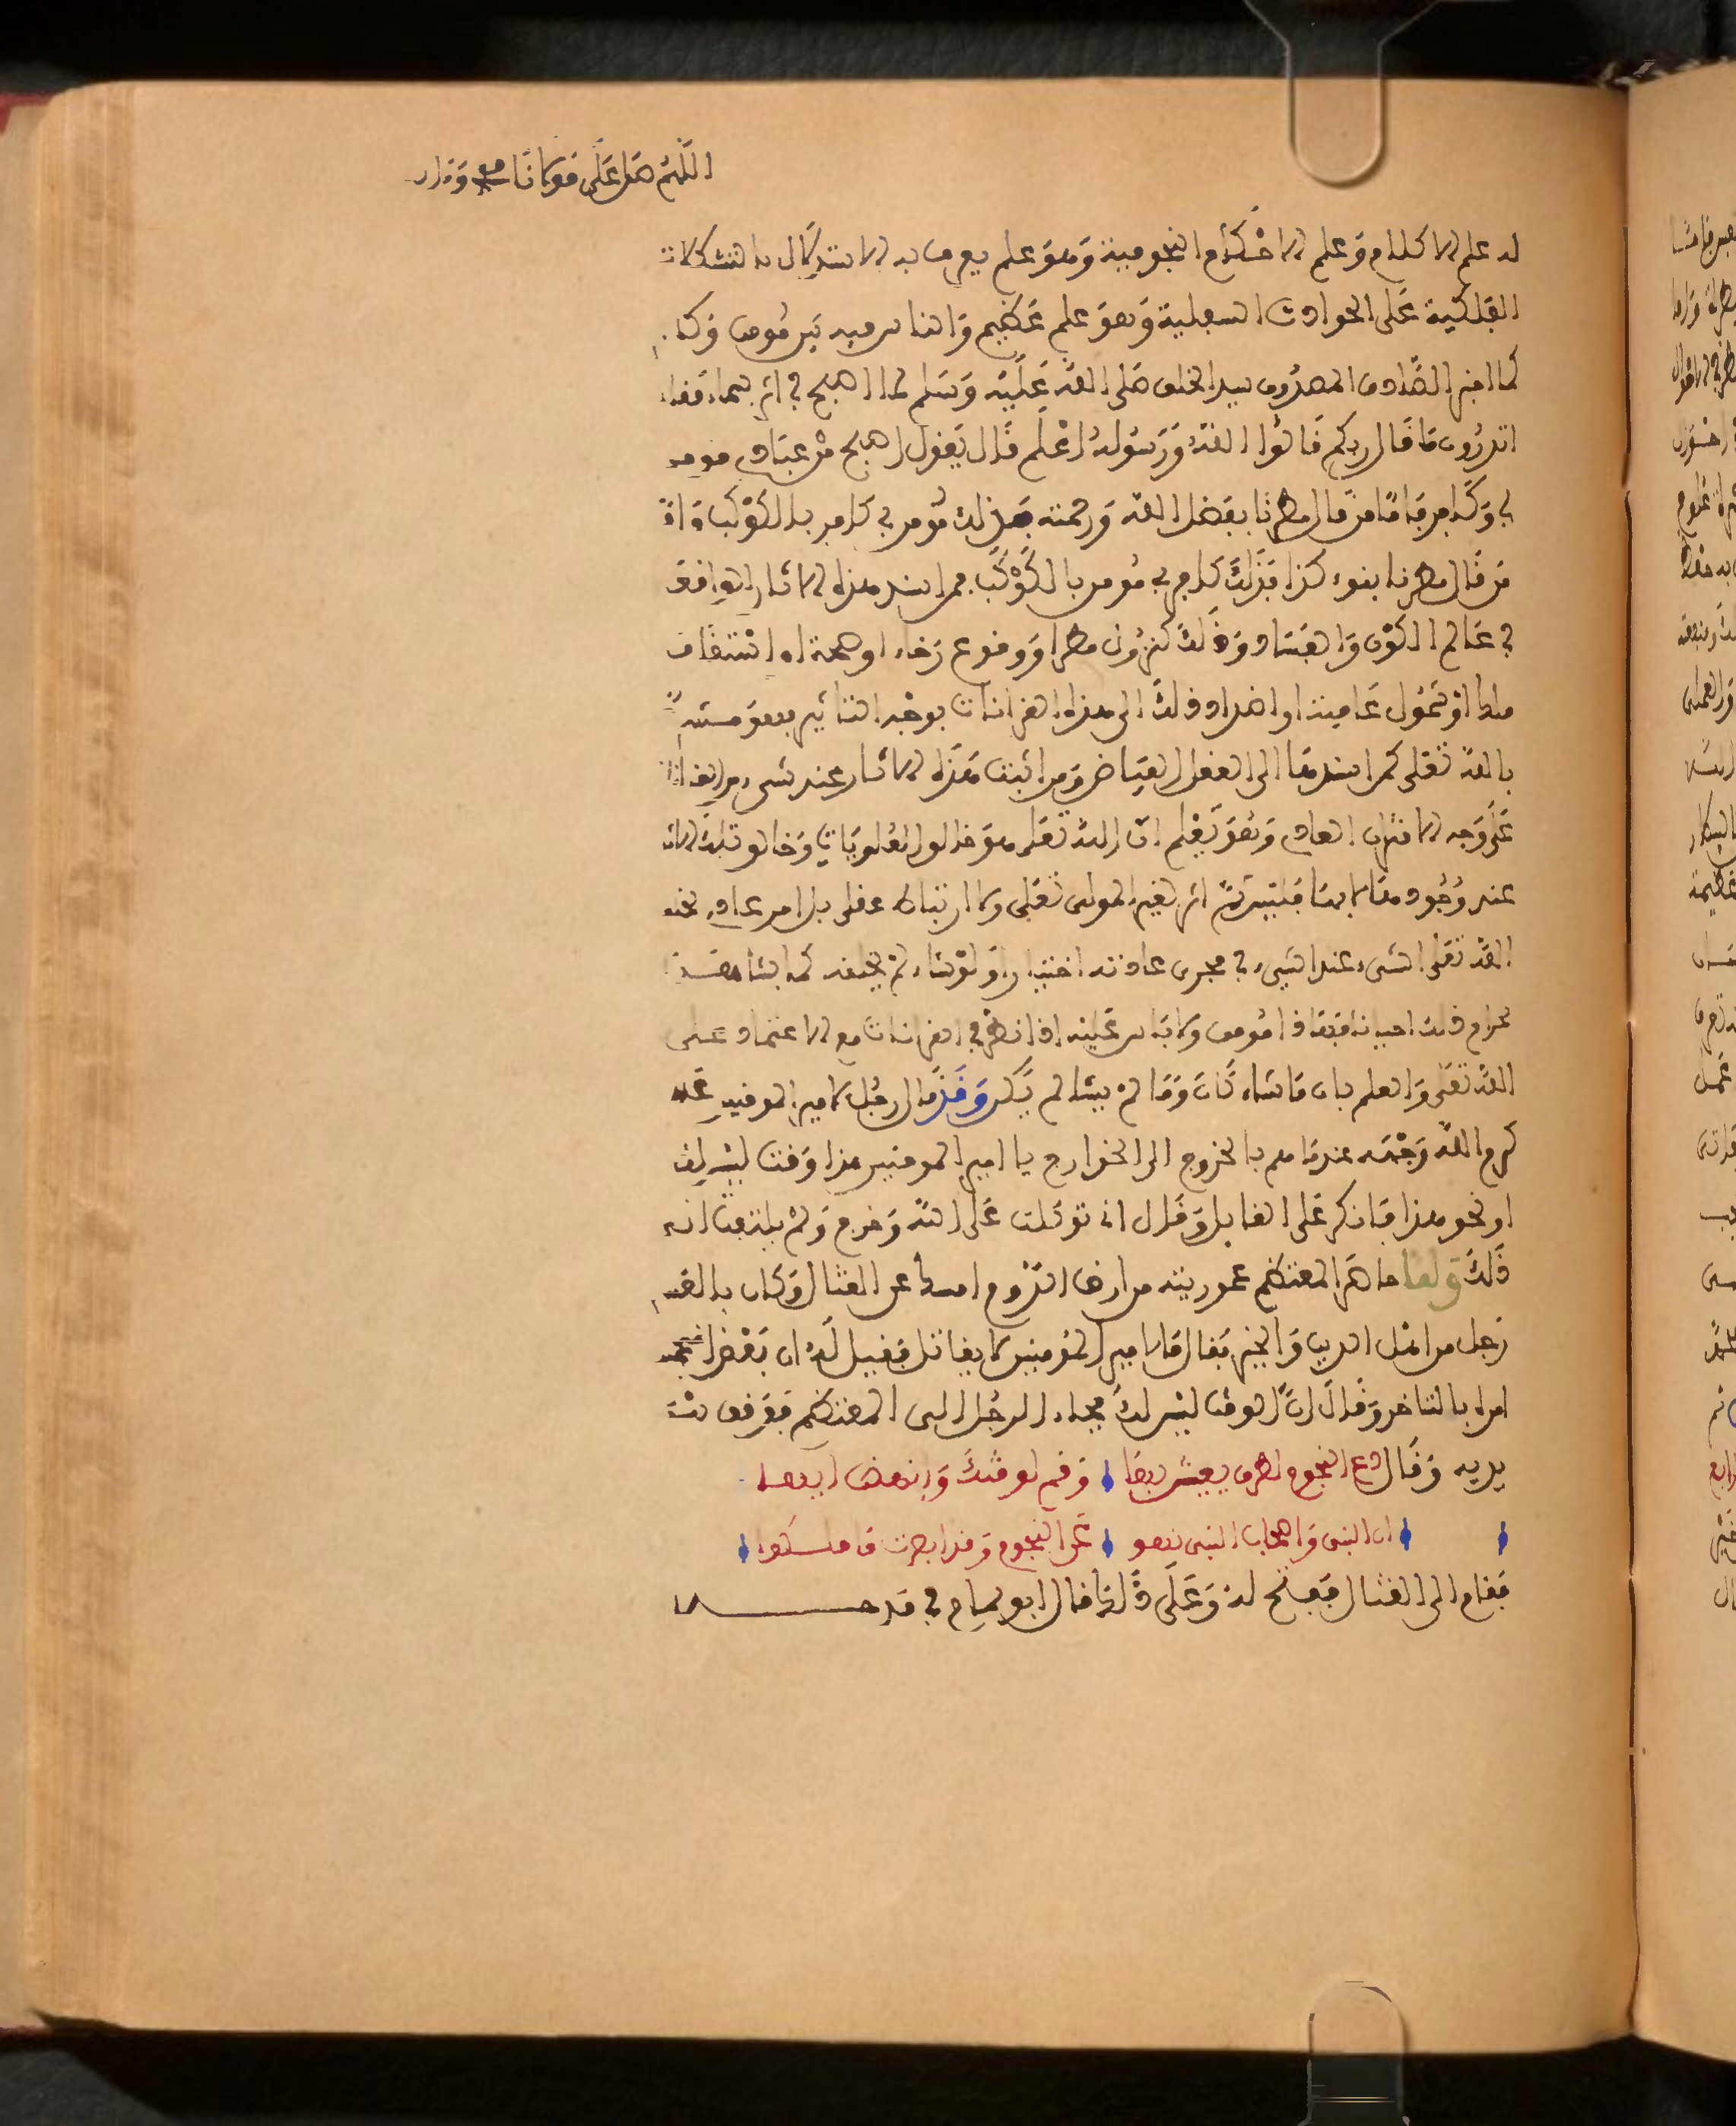 اللهم صل على مولانا محمد وءاله
له علم الاكلام وعلم الاحكام النجومية وهو علم يعرف به الاستدلال بالتشكلات
الفلكية على الحوادث السفلية وهو علم عظيم والناس فيه بين مومن وكا
كما اخبر الصادق المصدوق سيد الخلق صلى الله عليه وسلم لما اصبح في اثر سماء فقال
اتدرون ما قال ربكم قالوا الله ورسوله اعلم قال يقول اصبح من عبادي مومن
بي وكافر فاما من قال مطرنا بفضل الله ورحمته فذلك مومن بي كافر بالكوكب واما
من قال مطرنا بنوء كذا فذلك كافر بي مومن بالكوكب فمن اسند هذه الاثار الواقعة
في عالم الكون والفساد وذلك كنزول مطر او وقوع رخاء او صحة او انتقال
ملك او شمول عافية او اضداد ذلك الى هذه القرانات بوجه التاثير فهو مشرك
بالله تعلى كمن اسندها الى العقل الفياض ومن اثبت هذه الاثار عند شيء من القرانات
على وجه الاقتران العادي وهو يعلم ان الله تعلى هو خالق العلويات وخالق تلك الاثار
عند وجودها لا بها فليس ثم اثر لغير المولى تعلى ولا ارتباط عقلي بل امر عادي يخلق
الله تعلى الشيء عند الشيء في مجرى عادته اختيارا ولو شاء لم يخلقه كما يشاهد
بخرام ذلك احيانا فهذا مومن ولا باس عليه اذا نظر في القرانات مع الاعتماد على
الله تعلى والعلم بان ما شاء كان وما لم يشا لم يكن وقد قال رجل لامير المومنين علي
كرم الله وجهه عندما هم بالخروج الى الخوارج يا امير المومنين هذا وقت ليس لك
او نحو هذا فانكر على القايل وقال اني توكلت على الله وخرج ولم يلتفت الى
ذلك ولما حاصر المعتصم عمورية من ارض الروم امسك عن القتال وكان بالقسـ
رجل من اهل الدين والخير فقال ما لامير المومنين لا يقاتل فقيل له ان بعض المنجمين
امره بالتاخر وقال ان الوقت ليس لك فجاء الرجل الى المعتصم فوقف بين
يديه وقال دع النجوم لطرقي يعيش بها وقم لوقتك وانهض ايها
ان النبي واصحاب النبي نهوا عن النجوم وقد ابصرت ما ملكوا
فقام الى القتال ففتح له وعلى ذلك قال ابو تمام في مدحـــه